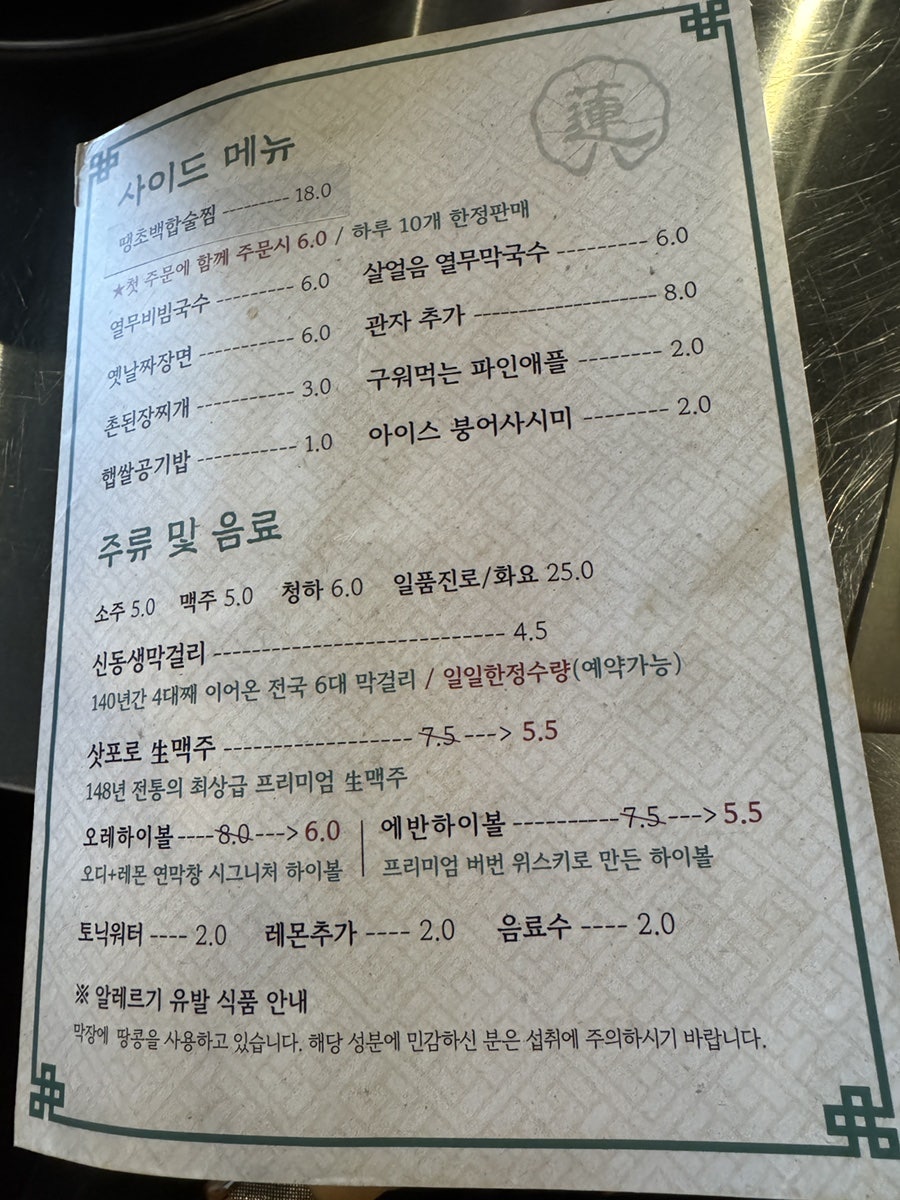 蓮
사이드 메뉴
땡초백합술찜 ---------- 18.0
★첫 주문에 함께 주문시 6.0 / 하루 10개 한정판매
열무비빔국수 --------- 6.0
살얼음 열무막국수 ---------- 6.0
옛날짜장면 ----------- 6.0
관자 추가 -------------------- 8.0
촌된장찌개 ----------- 3.0
구워먹는 파인애플 --------- 2.0
햅쌀공기밥 ----------- 1.0
아이스 붕어사시미 --------- 2.0
주류 및 음료
소주 5.0 맥주 5.0 청하 6.0 일품진로/화요 25.0
신동생막걸리 -------------------------------- 4.5
140년간 4대째 이어온 전국 6대 막걸리 / 일일한정수량(예약가능)
삿포로 生맥주 ------------------- 7.5 ---> 5.5
148년 전통의 최상급 프리미엄 生맥주
오레하이볼 ---- 8.0 ---> 6.0
에반하이볼 ----------- 7.5 ---> 5.5
오디+레몬 연막창 시그니처 하이볼
프리미엄 버번 위스키로 만든 하이볼
토닉워터 ---- 2.0 레몬추가 ---- 2.0 음료수 ---- 2.0
※ 알레르기 유발 식품 안내
막장에 땅콩을 사용하고 있습니다. 해당 성분에 민감하신 분은 섭취에 주의하시기 바랍니다.